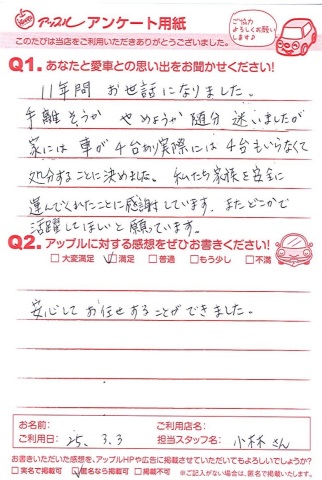 アップル アンケート用紙
ご協力
よろしくお願い
します♪
このたびは当店をご利用いただきありがとうございました。
Q1. あなたと愛車との思い出をお聞かせください!
11年間 お世話になりました。
手離そうか やめようか 随分 迷いましたが
家には 車が 4台あり実際には 4台もいらなくて
処分することに決めました。 私たち家族を安全に
運んでくれたことに感謝しています。 またどこかで
活躍してほしいと願っています。
Q2. アップルに対する感想をぜひお書きください!
□大変満足 ☑満足 □普通 □もう少し □不満
安心して お任せすることができました。
お名前: ご利用店名:
ご利用日: 25. 3. 3 担当スタッフ名: 小林さん
お書きいただいた感想を、アップルHPや広告に掲載させていただいてもよろしいでしょうか?
□実名で掲載可 ☑匿名なら掲載可 □掲載不可 ※ご記入がない場合は、匿名で掲載いたします。